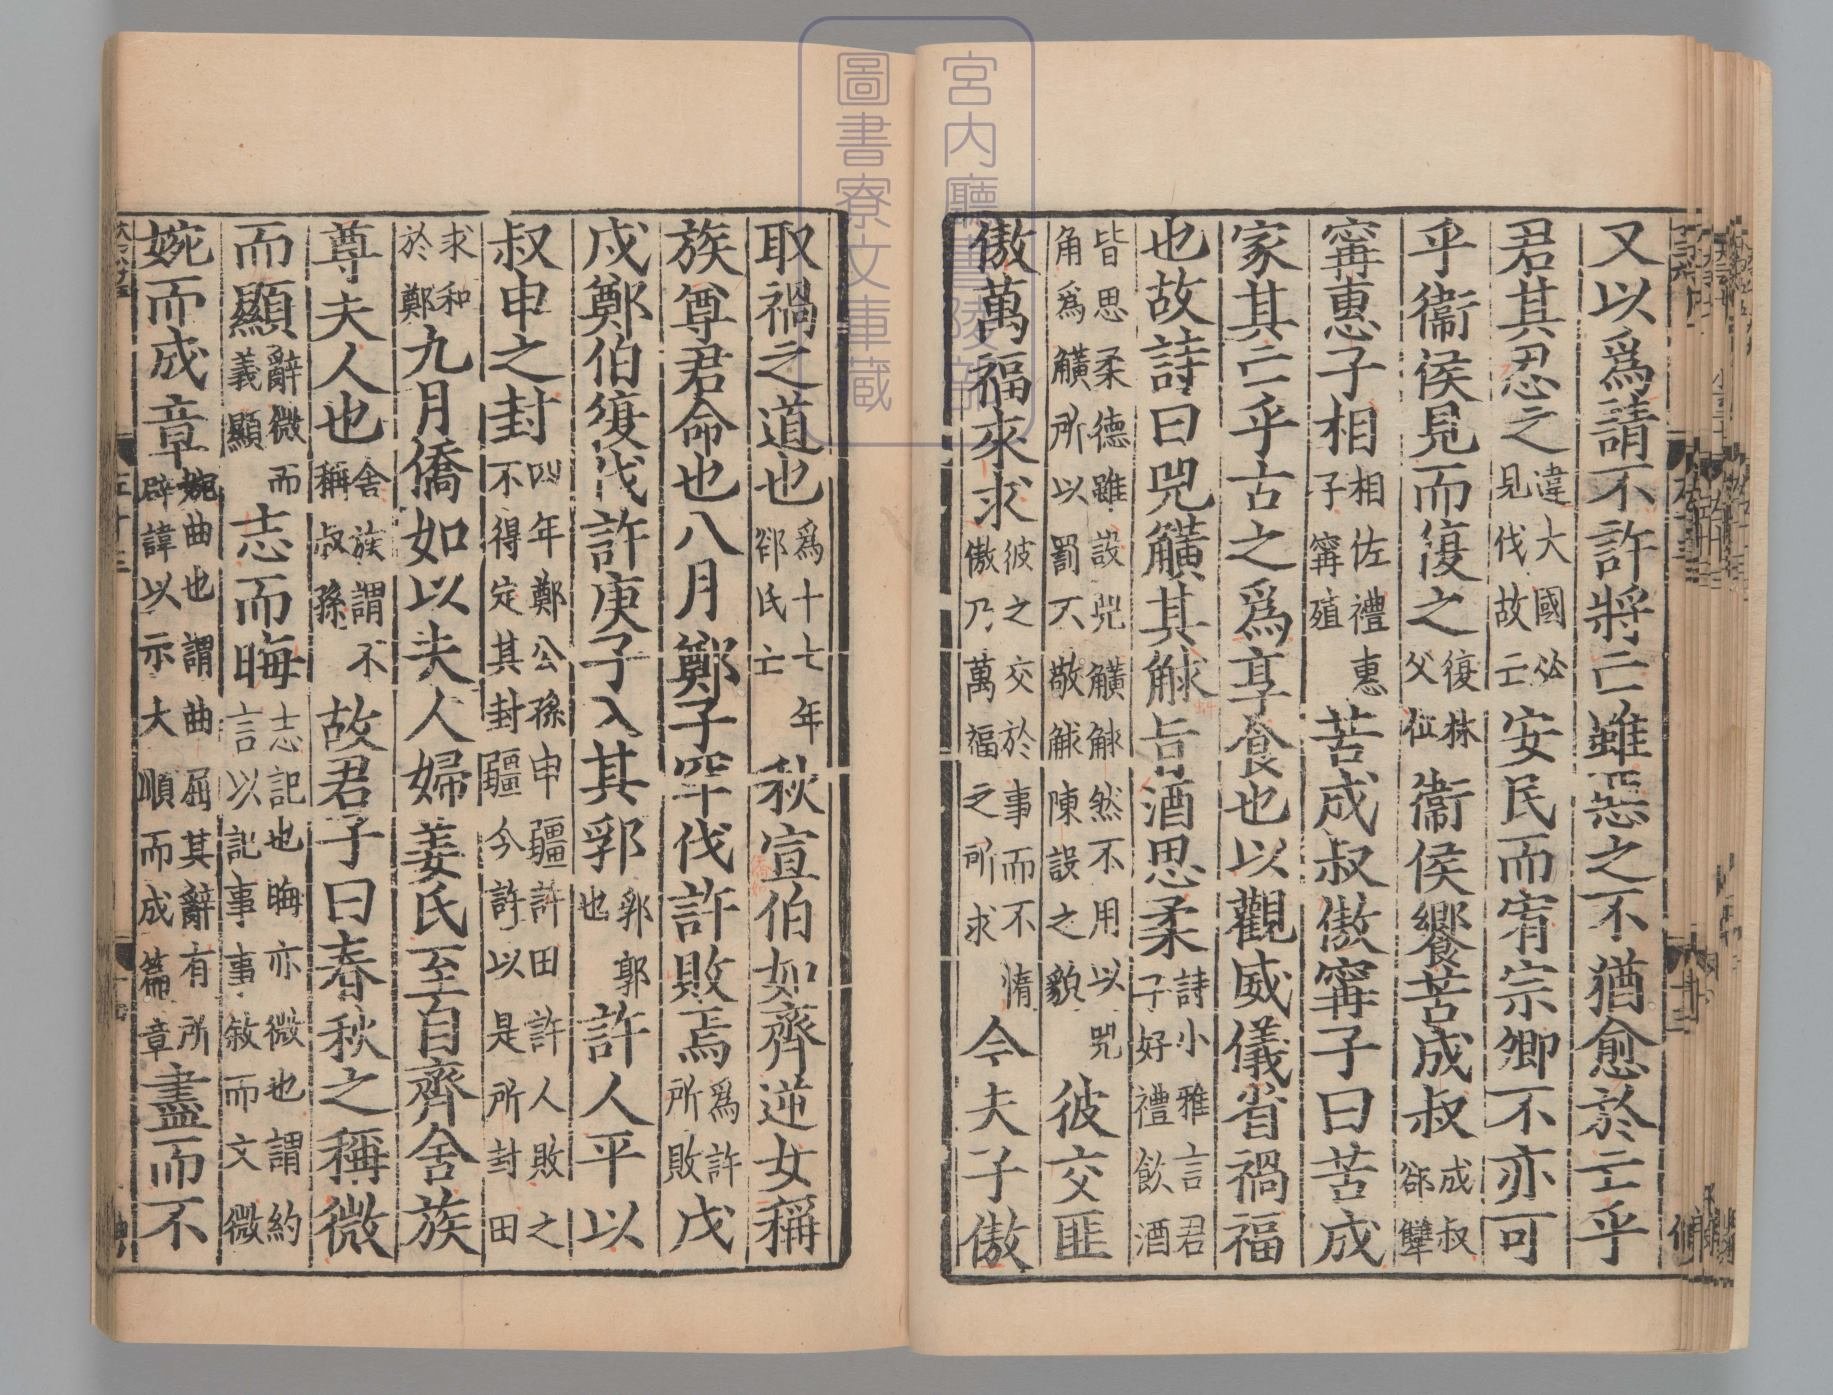 又以爲請不許將亡雖惡之不猶愈於亡乎
君其忍之違大國必見伐故亡安民而宥宗卿不亦可
乎衞侯見而復之復林父位衞侯饗苦成叔成叔郤犫
甯惠子相相佐禮惠子甯殖苦成叔傲甯子曰苦成
家其亡乎古之爲享食也以觀威儀省禍福
也故詩曰兕觵其觩旨酒思柔詩小雅言君子好禮飲酒
皆思柔德雖設兕觵觩然不用以兕角爲觵所以罰不敬觩陳設之貌彼交匪
傲萬福來求彼之交於事而不惰傲乃萬福之所求今夫子傲
取禍之道也爲十七年郤氏亡秋宣伯如齊逆女稱
族尊君命也八月鄭子罕伐許敗焉爲許所敗戊
戌鄭伯復伐許庚子入其郛郛郭也許人平以
叔申之封四年鄭公孫申疆許田許人敗之不得定其封疆今許以是所封田
求和於鄭九月僑如以夫人婦姜氏至自齊舍族
尊夫人也舍族謂不稱叔孫故君子曰春秋之稱微
而顯辭微而義顯志而晦志記也晦亦微也謂約言以記事事敘而文微
婉而成章婉曲也謂曲屈其辭有所辟諱以示大順而成篇章盡而不
宮内廳書陵部
圖書寮文庫蔵